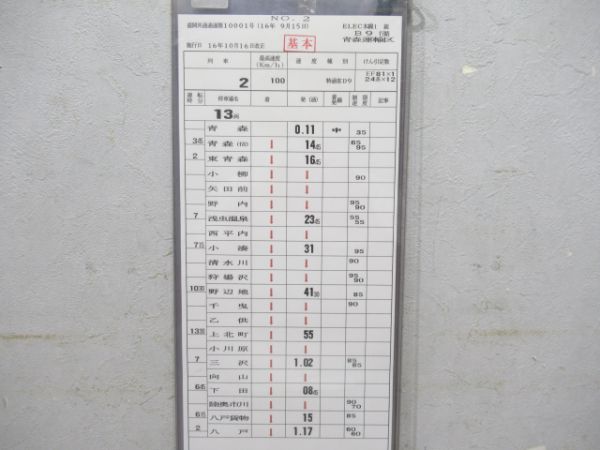 NO. 2
盛岡共通達運第10001号(16年 9月15日)
ELEC本線1 組
B9 運
青森運輸区
施行日 16年10月16日改正
基本
列車 最高速度(Km/h) 速度種別 けん引定数
2 100 特通客D9 EF81×1
24系×12
運転時分 停車場名 着 発(通) 着発線 制限速度 記事
13両
青森 0.11 中 35
3 45 青森(信) ↓ 14 45 65 95
2 東青森 ↓ 16 45
小柳 ↓ ↓ 90
矢田前 ↓ ↓
野内 ↓ ↓ 95 90
7 浅虫温泉 ↓ 23 45 55 55
西平内 ↓ ↓
7 15 小湊 ↓ 31 95
清水川 ↓ ↓ 90
狩場沢 ↓ ↓ 95 90
10 30 野辺地 ↓ 41 30 85
千曳 ↓ ↓ 90
乙供 ↓ ↓
13 30 上北町 ↓ 55
小川原 ↓ ↓
7 三沢 ↓ 1.02 85 85
向山 ↓ ↓
6 45 下田 ↓ 08 45
陸奥市川 ↓ ↓ 90 70
6 15 八戸貨物 ↓ 15 85
2 八戸 ↓ 1.17 60 60